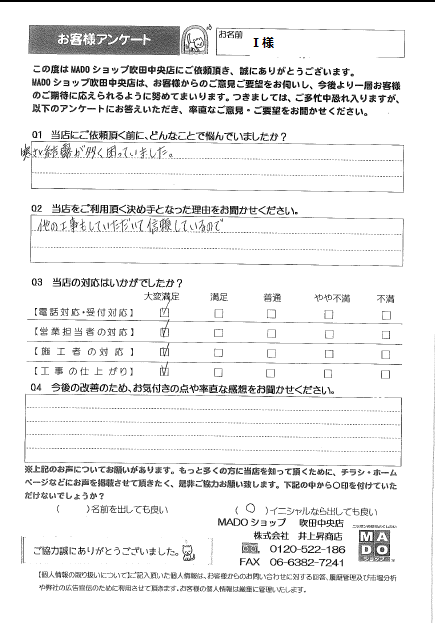 お客様アンケート
お名前
I様
この度はMADOショップ吹田中央店にご依頼頂き、誠にありがとうございます。
MADOショップ吹田中央店は、お客様からのご意見ご要望をお伺いし、今後より一層お客様
のご期待に応えられるように努めてまいります。つきましては、ご多忙中恐れ入りますが、
以下のアンケートにお答えいただき、率直なご意見・ご要望をお聞かせください。
Q1 当店にご依頼頂く前に、どんなことで悩んでいましたか？
寒さと結露が多く困っていました。
Q2 当店をご利用頂く決め手となった理由をお聞かせください。
他の工事もしていただいて信頼しているので
Q3 当店の対応はいかがでしたか？
大変満足 満足 普通 やや不満 不満
【電話対応・受付対応】
【営業担当者の対応】
【施工者の対応】
【工事の仕上がり】
Q4 今後の改善のため、お気付きの点や率直な感想をお聞かせください。
※上記のお声についてお願いがあります。もっと多くの方に当店を知って頂くために、チラシ・ホーム
ページなどにお声を掲載させて頂きたく、是非ご協力お願い致します。下記の中から○印を付けていた
だけないでしょうか？
( )名前を出しても良い (○)イニシャルなら出しても良い
MADOショップ 吹田中央店
株式会社 井上昇商店
0120-522-186
FAX 06-6382-7241
MADO
ショップ
ご協力誠にありがとうございました。
【個人情報の取り扱いについて】ご記入頂いた個人情報は、お客様からのお問い合わせに対する回答、履歴管理及び市場分析
や弊社の広告宣伝のために利用させて頂きます。お客様の個人情報は厳重に管理いたします。